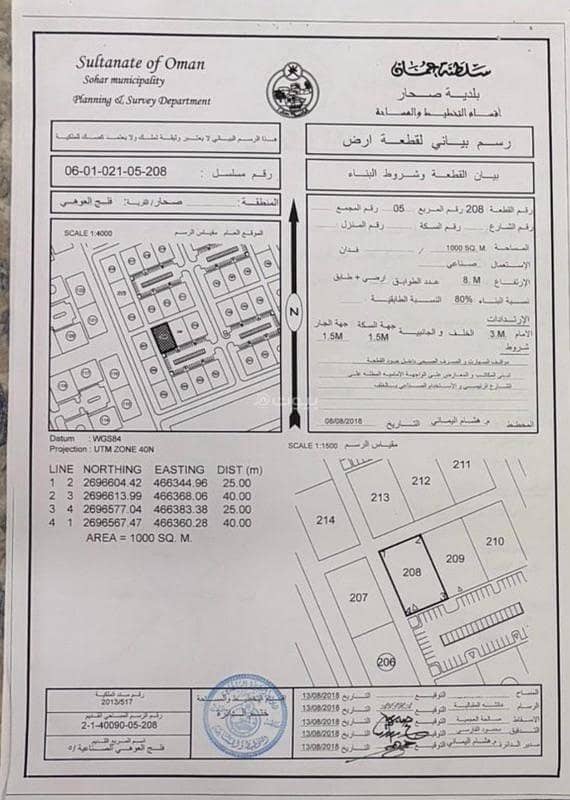 Sultanate of Oman
Sohar municipality
Planning & Survey Department
سلطنة عمان
بلدية صحار
أقسام التخطيط والمساحة
هذا الرسم البياني لا يعتبر وثيقة تملك ولا يعتمد كسند للملكية
رسم بياني لقطعة ارض
رقم مسلسل : 06-01-021-05-208
بيان القطعة وشروط البناء
المنطقة : صحار /القرية: فلج العوهي
SCALE 1:4000 الموقع العام مقياس الرسم
رقم القطعة 208 رقم المربع 05 رقم المجمع
رقم الشارع رقم السكة رقم المنزل
المساحة 1000 SQ. M. / فدان
الاستعمال صناعي
الارتفاع 8. M عدد الطوابق ارضي + طابق
نسبة البناء 80% النسبة الطابقية
الإرتدادات
الامام 3.M الخلف و الجانبية 1.5M جهة السكة 1.5M جهة الجار
شروط
مواقف السيارات و الصرف الصحي داخل حدود القطعة
الشارع الرئيسي و الاستخدام الصناعي بالخلف
المخطط م. هشام اليماني التاريخ 08/08/2018
N
بيوت
Datum : WGS84
Projection : UTM ZONE 40N
SCALE 1:1500 مقياس الرسم
LINE NORTHING EASTING DIST (m)
1 2 2696604.42 466344.96 25.00
2 3 2696613.99 466368.06 40.00
3 4 2696577.04 466383.38 25.00
4 1 2696567.47 466360.28 40.00
AREA = 1000 SQ. M.
211
212
213
214
210
209
208
207
206
1
2
3
4
رقم سند الملكية
2013/517
رقم الرسم المساحي القديم
2-1-40090-05-208
اسم المربع القديم
فلج العوهي الصناعية /5
المساح التوقيع التاريخ 13/08/2018
الرسام التوقيع التاريخ 13/08/2018
الاسقاط التوقيع التاريخ 13/08/2018
التدقيق محمود الفارسي التوقيع التاريخ 13/08/2018
مدير الدائرة م.هشام اليماني التوقيع التاريخ 13/08/2018